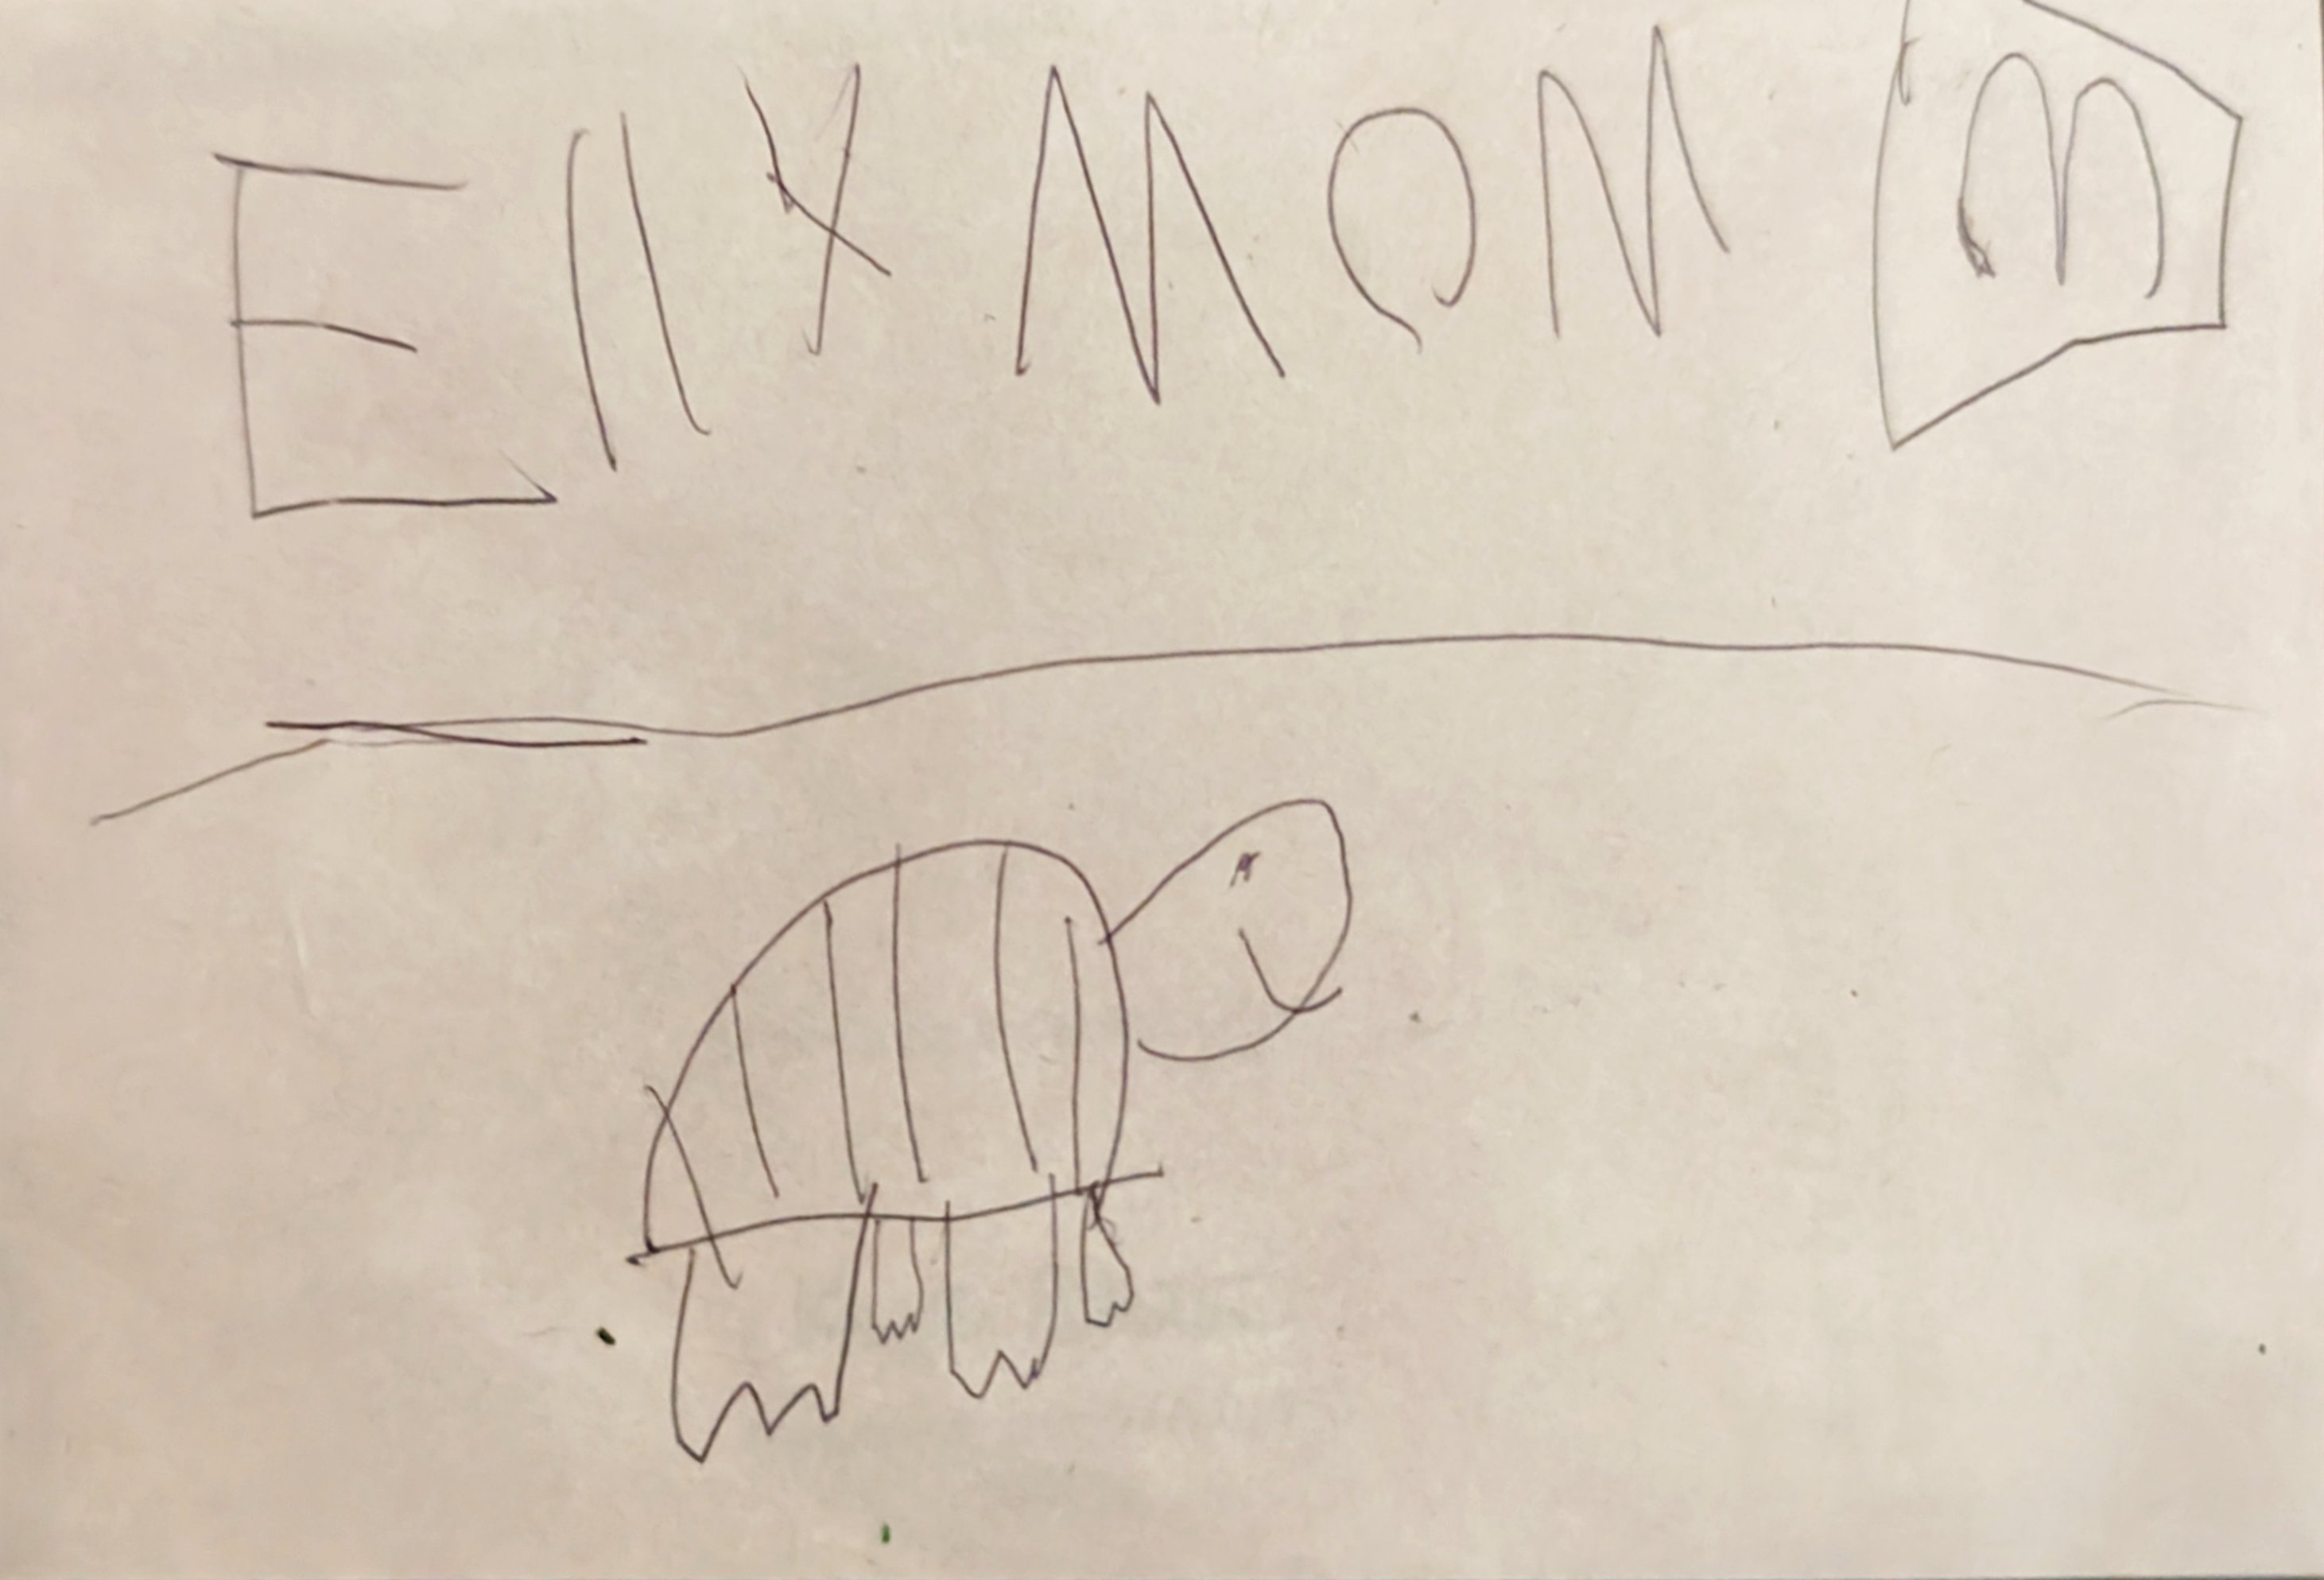 Elly MOM m